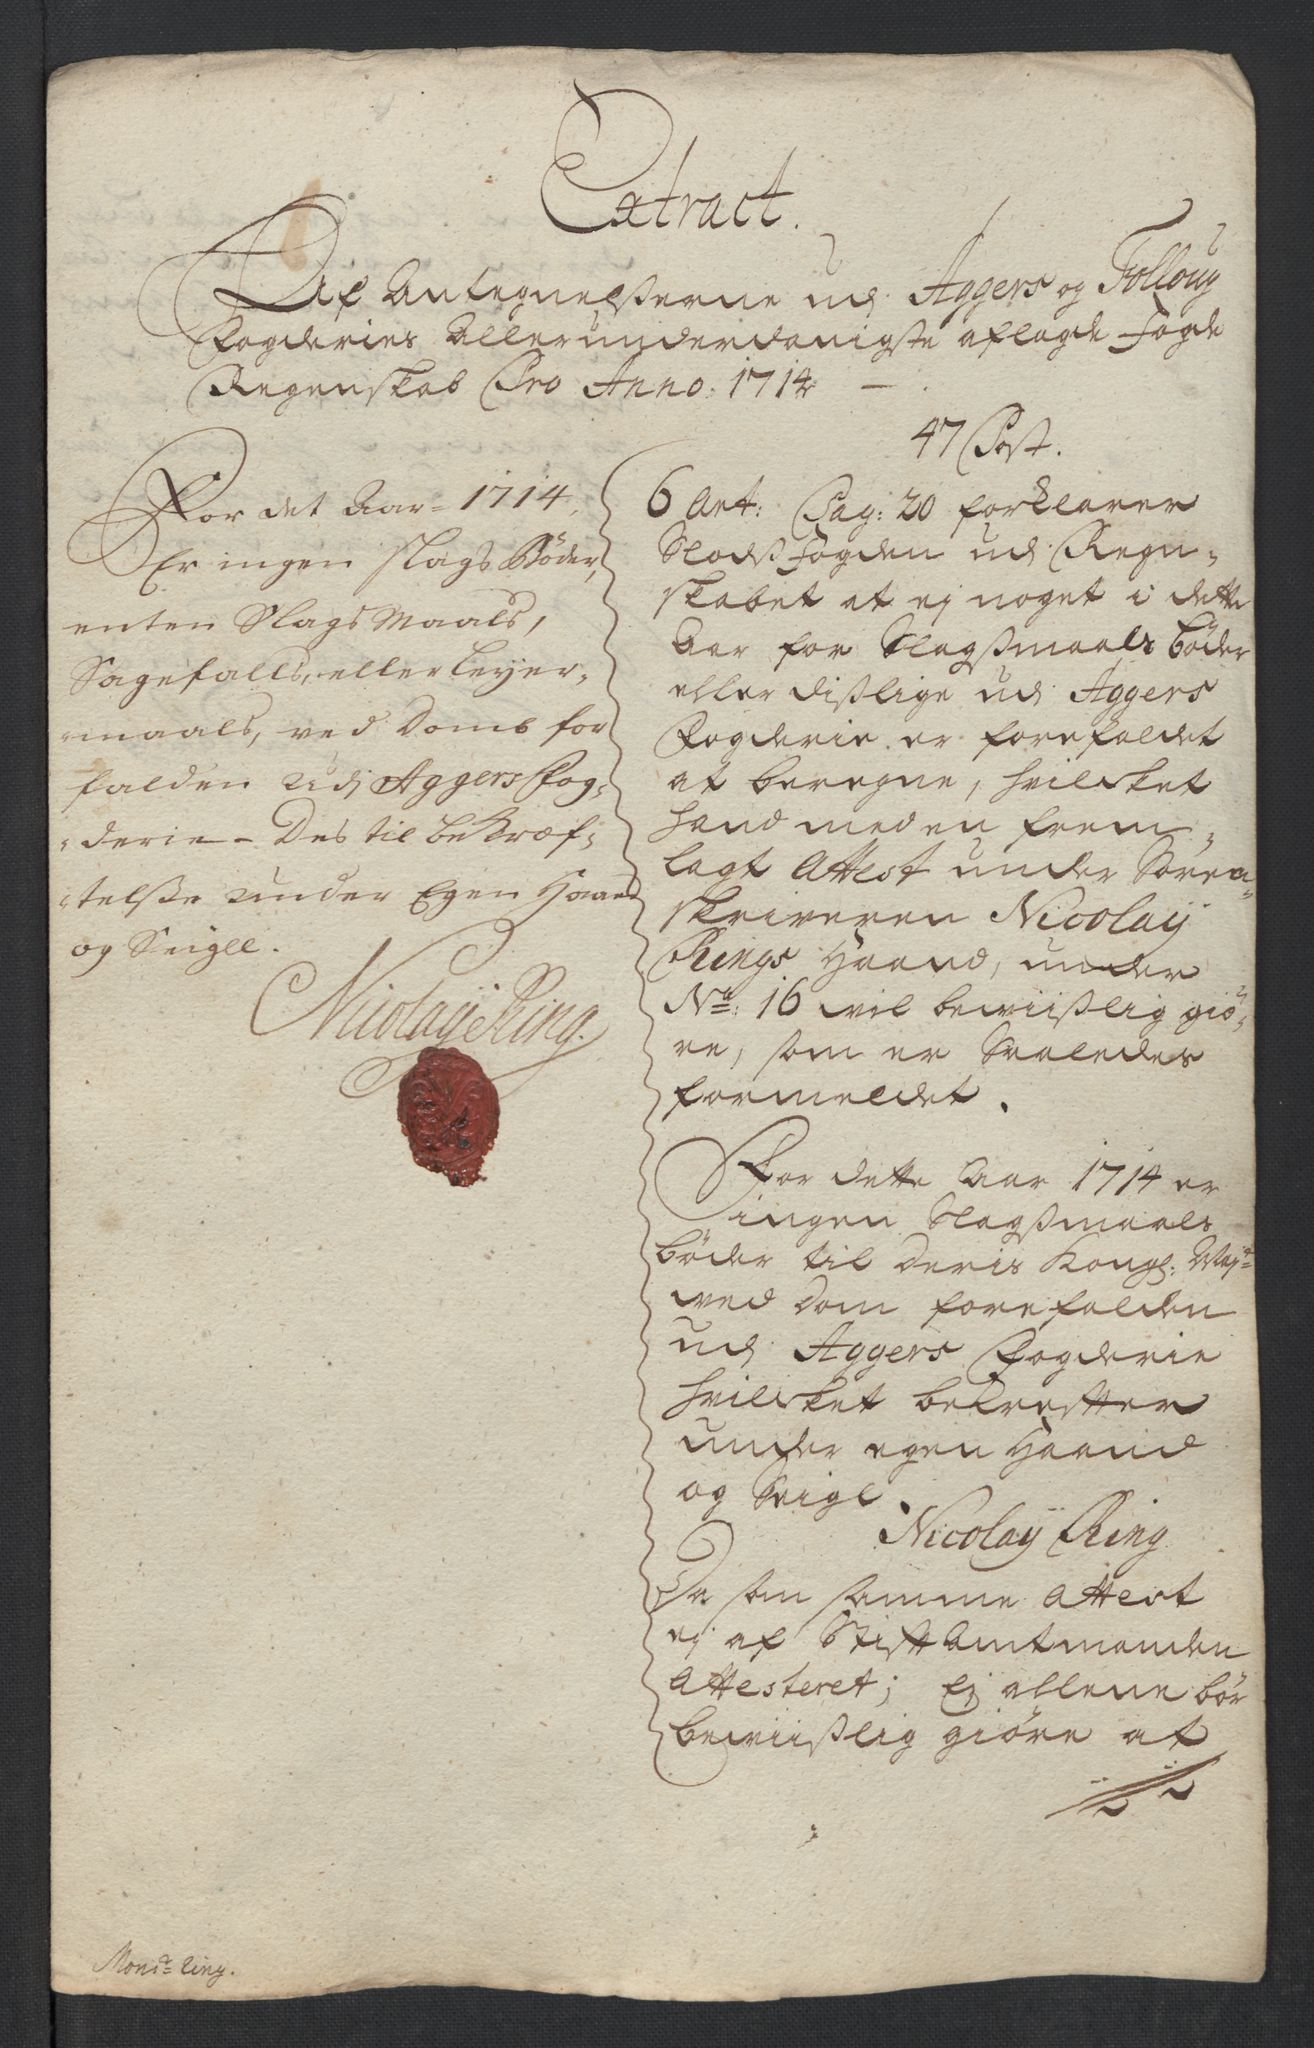 Extract.
Af Antegnelßerne udj Aggers og Folloug
Fogderies Allerunderdanigste aflagde Fogde
Regenskab Pro Anno 1714 —.
For det Aar 1714,
Er ingen slags Bøder,
enten SlagsMaals,
Sagefalds, eller Leyer-
maals, ved Domb for
falden udj Aggers Fog-
derie – Des til bekræf-
telße under Egen Haand
og Seigel.
Nicolaij Ring.
47 Post.
6 Art: Pag: 20 forklarer
Slodsfogden udj Regn-
skabet at ej noget i dette
Aar for Slagßmaals bøder
eller dißlige udj Aggers
Fogderie er forefaldet
at beregne, hvilcket
hand med en frem-
lagt Attest under Soren-
skriveren Nicolaij
Rings Haand, under
No: 16 vil beviißlig giø-
re, som er Saaledes
formeldet.
For dette Aar 1714 er
ingen Slagßmaals
bøder til Deris Kongl: Mayt
ved Dom forefalden
udj Aggers Fogderie
hvilcket bekrefter
under egen Haand
og Seigl.
Nicolaij Ring
Da som samme Attest
ej af Stiftamtmanden
Attesteret; Ej allene bør
beviißlig giøre at
Monsr Ring.